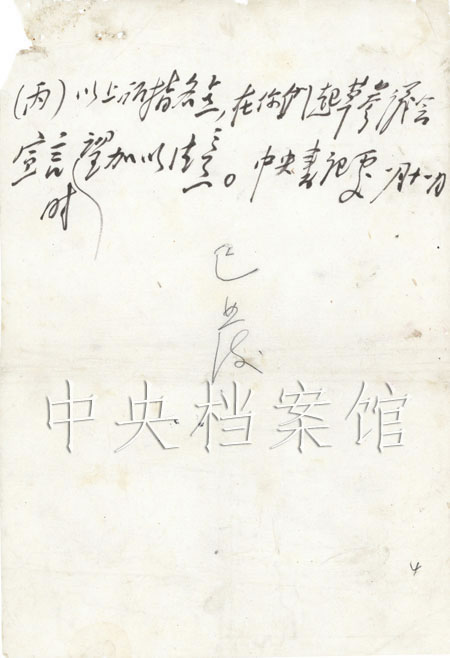 (丙)以上所指各点,在你们起草参议会
宣言时望加以注意。中央书记处 一月十一日
已发
中央档案馆
4